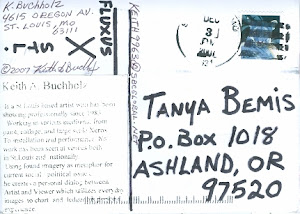 K. Buchholz
4615 OREGON AV.
ST. LOUIS, MO
63111
FLUXUS
X
STL
©2007 Keith A Buchholz
DEC
3
Keith A. Buchholz
Is a St Louis based artist who has been
showing professionally since 1983
Working in various mediums, from
paint, collage, and
To installation and performance. His
works have been seen in
St Louis and nationally.
Using found imagery as metaphor for
current social / political issues
he creates a personal dialog between
Artist and Viewer which utilizes everyday
images to chart and
experience
TANYA BEMIS
P.O. BOX 1018
ASHLAND, OR
97520